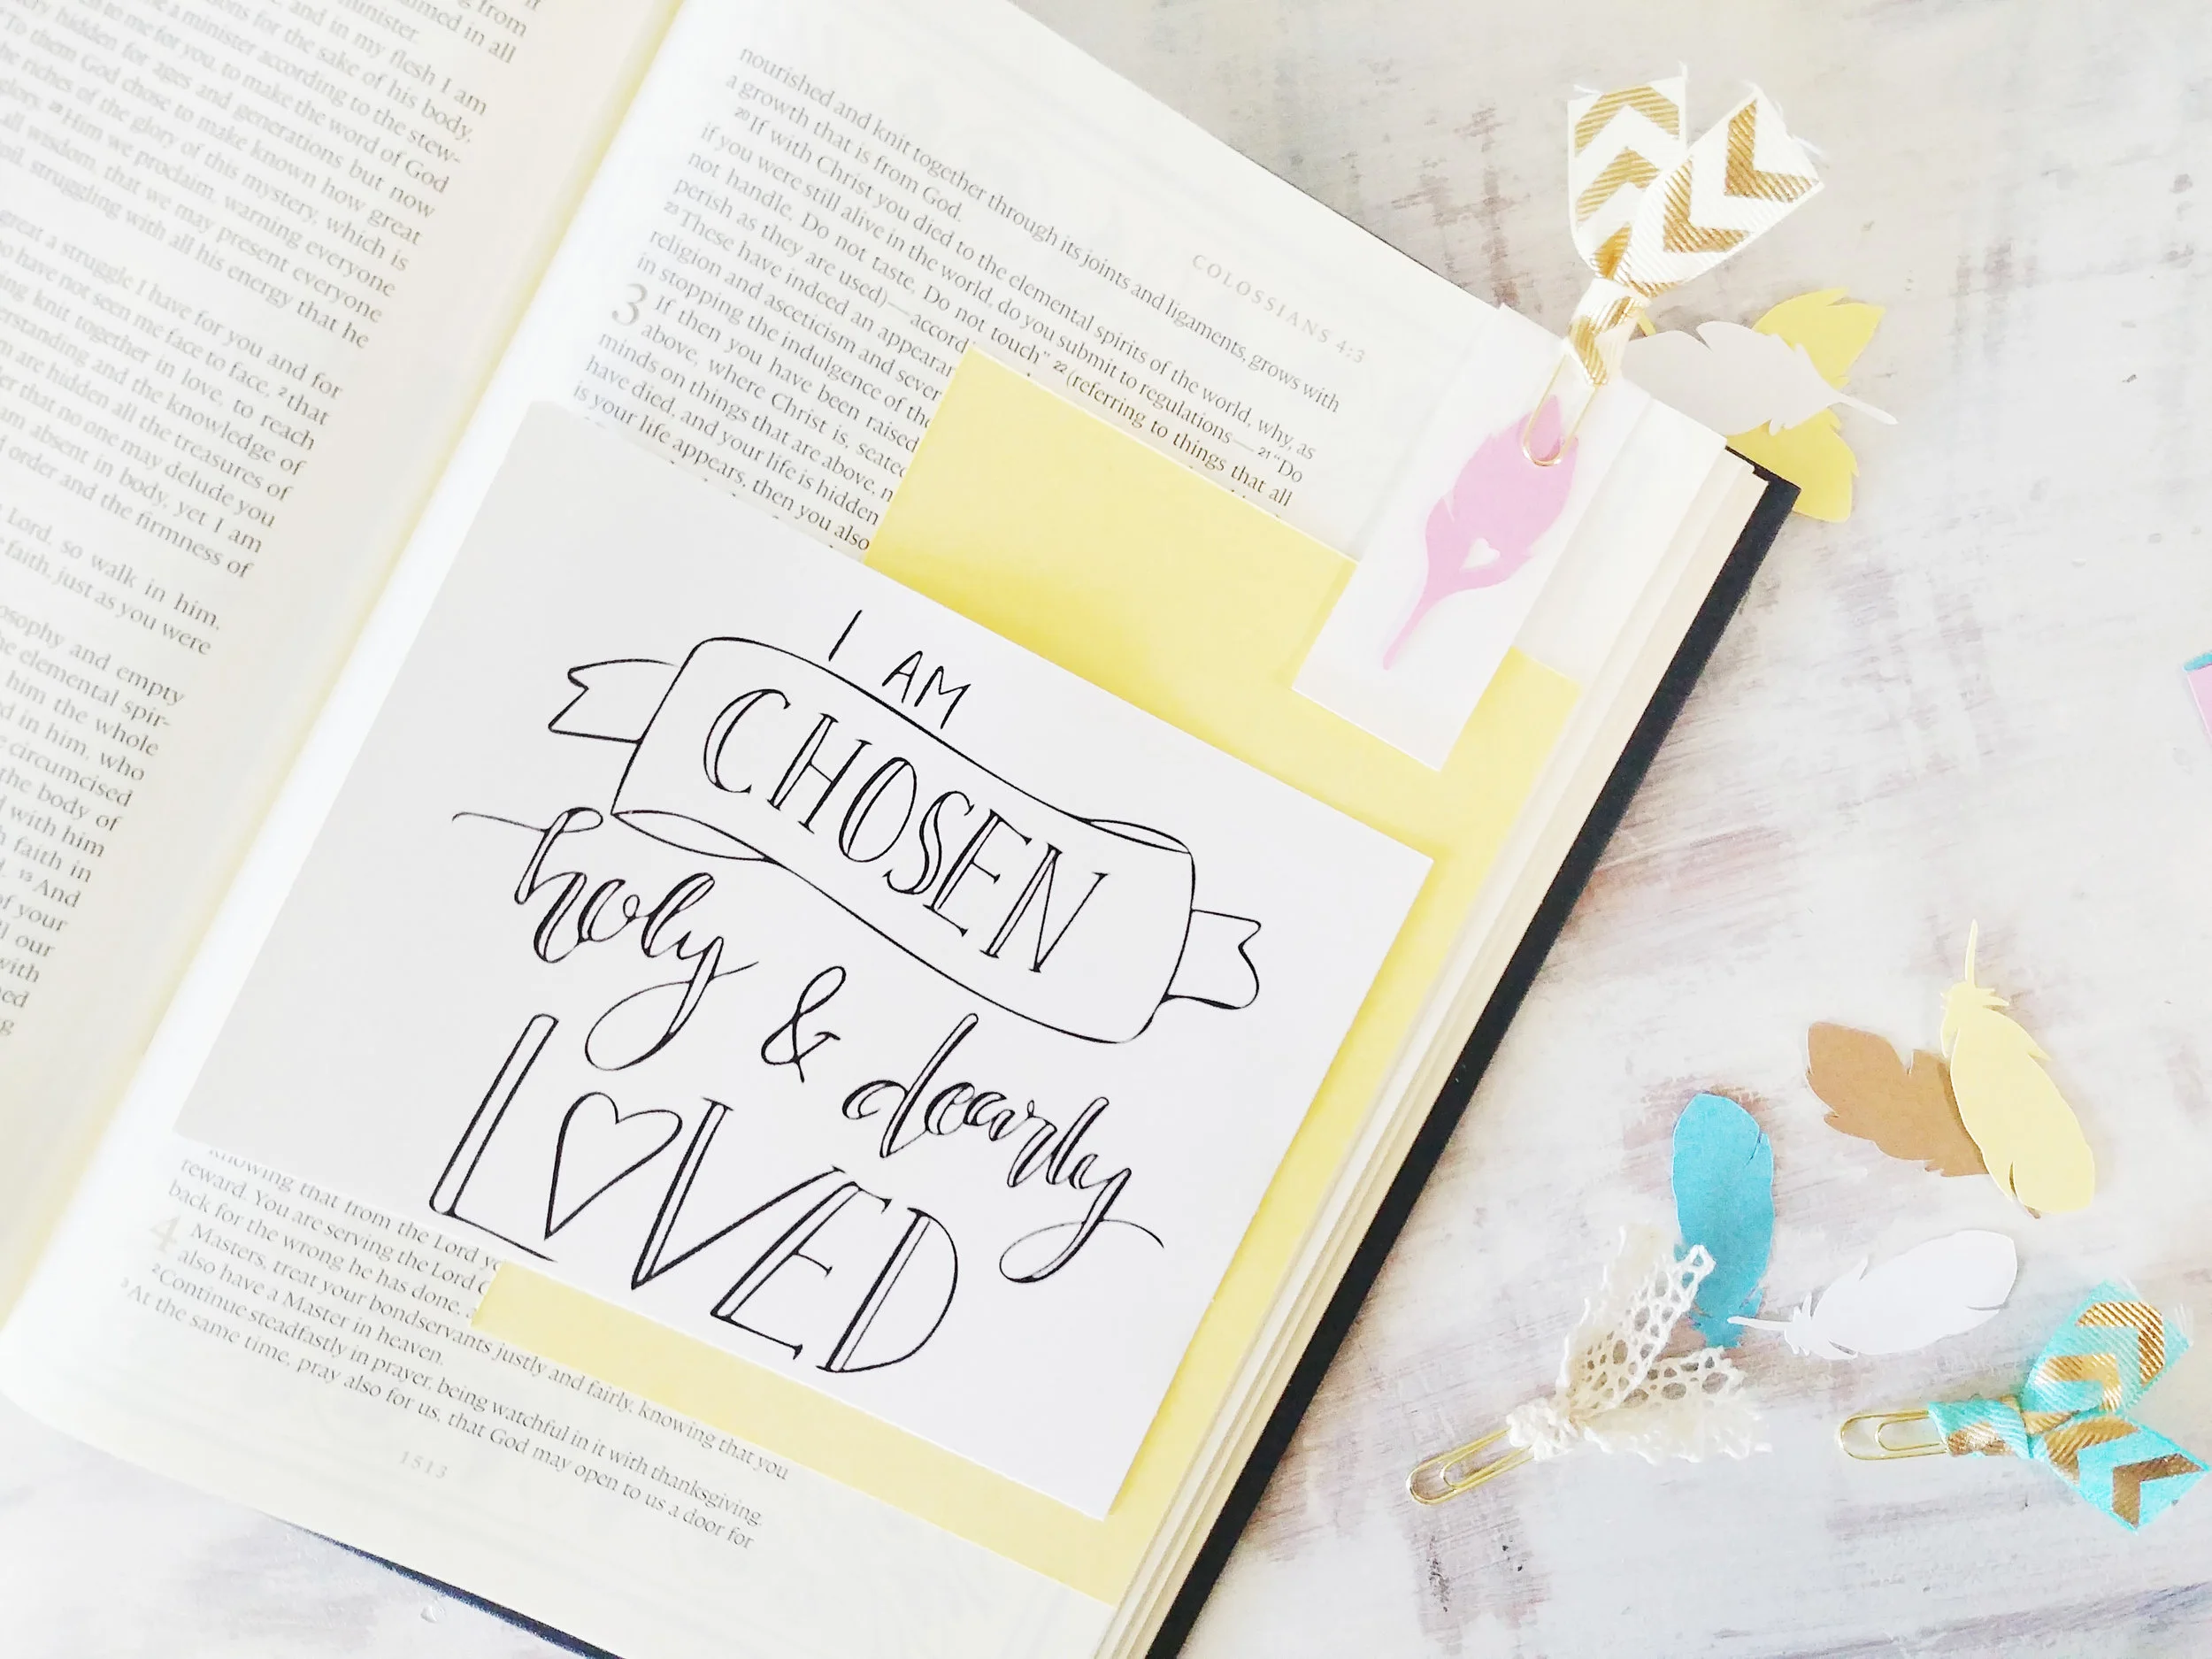 from
and in my flesh I am
for the sake of his body,
a minister according to the stew-
to me for you, to make the word of God
hidden for ages and generations but now
To them God chose to make known how great
riches of the glory of this mystery, which is
glory. 28 Him we proclaim, warning everyone
all wisdom, that we may present everyone
struggling with all his energy that he
great a struggle I have for you and for
have not seen me face to face, 2 that
knit together in love, to reach
and the knowledge of
are hidden all the treasures of
that no one may delude you
am absent in body, yet I am
order and the firmness of
Lord, so walk in him,
faith, just as you were
and empty
elemental spir-
him the whole
in him, who
circumcised
the body of
with him
faith in
13 And
of your
our
with
COLOSSIANS 4:3
nourished and knit together through its joints and ligaments, grows with
a growth that is from God.
20 If with Christ you died to the elemental spirits of the world, why, as
if you were still alive in the world, do you submit to regulations— 21 "Do
not handle, Do not taste, Do not touch" 22 (referring to things that all
perish as they are used)—accord
23 These have indeed an appearan
religion and asceticism and sever
in stopping the indulgence of the
3 If then you have been raised
above, where Christ is, seated
minds on things that are above, n
have died, and your life is hidden
is your life appears, then you also
I AM
CHOSEN
holy & dearly
LOVED
knowing that from the Lord yo
reward. You are serving the Lord C
back for the wrong he has done,
4 Masters, treat your bondservants justly and fairly, knowing that you
also have a Master in heaven.
2 Continue steadfastly in prayer, being watchful in it with thanksgiving.
3 At the same time, pray also for us, that God may open to us a door for
1513